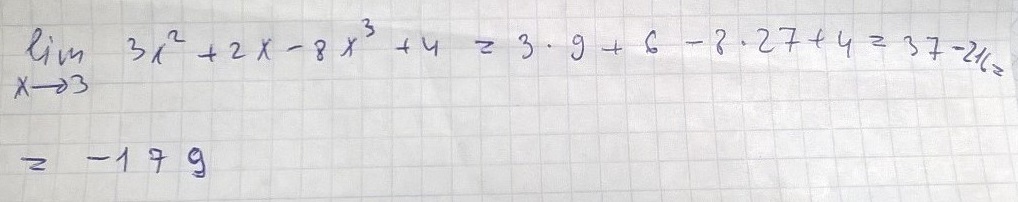 lim 3x² + 2x - 8x³ + 4 = 3 · 9 + 6 - 8 · 27 + 4 = 37 - 216 =
x→3
= -179